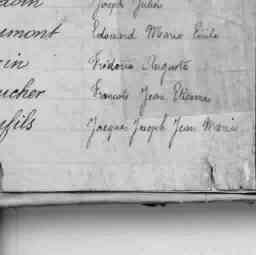 Joseph Julien
umont Edouard Marie Emile
in Frédéric Auguste
ucher François Jean Etienne
fils Jacques Joseph Jean Marie